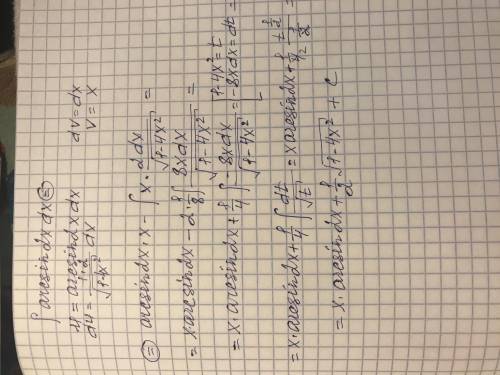 ∫ arcsin2x dx ⊜
u = arcsin2x dx    dv = dx
du = \frac{1·2}{\sqrt{1-4x²}} dx    v = x
⊜ arcsin2x · x - ∫ x · \frac{2dx}{\sqrt{1-4x²}} =
= x·arcsin2x - 2·\frac{1}{8} ∫ \frac{8xdx}{\sqrt{1-4x²}} =
= x·arcsin2x + \frac{1}{4} ∫ \frac{-8xdx}{\sqrt{1-4x²}} = [1-4x²=t
-8xdx=dt] =
= x·arcsin2x + \frac{1}{4} ∫ \frac{dt}{\sqrt{t}} = x arcsin2x + \frac{1}{4} \frac{t^{\frac{1}{2}}}{\frac{1}{2}} =
= x·arcsin2x + \frac{1}{2} \sqrt{1-4x²} + C